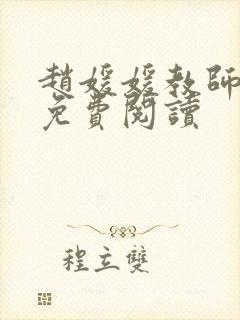 趙媛媛教師
免費閱讀
程立雙